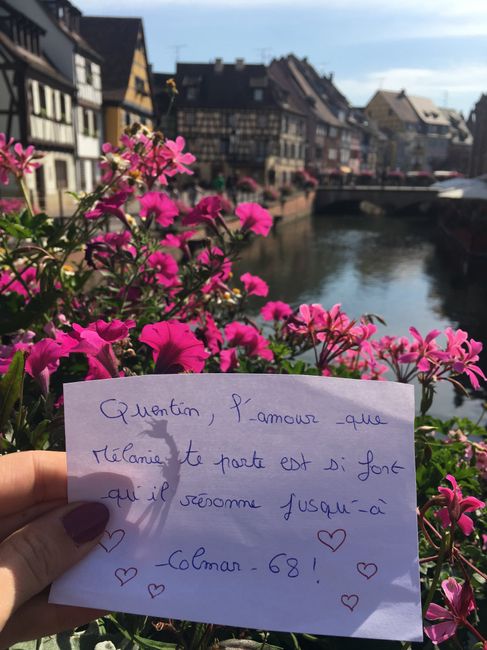 Quentin, l'amour que
Mélanie te porte est si fort
qu'il résonne jusqu'à
-Colmar-68!